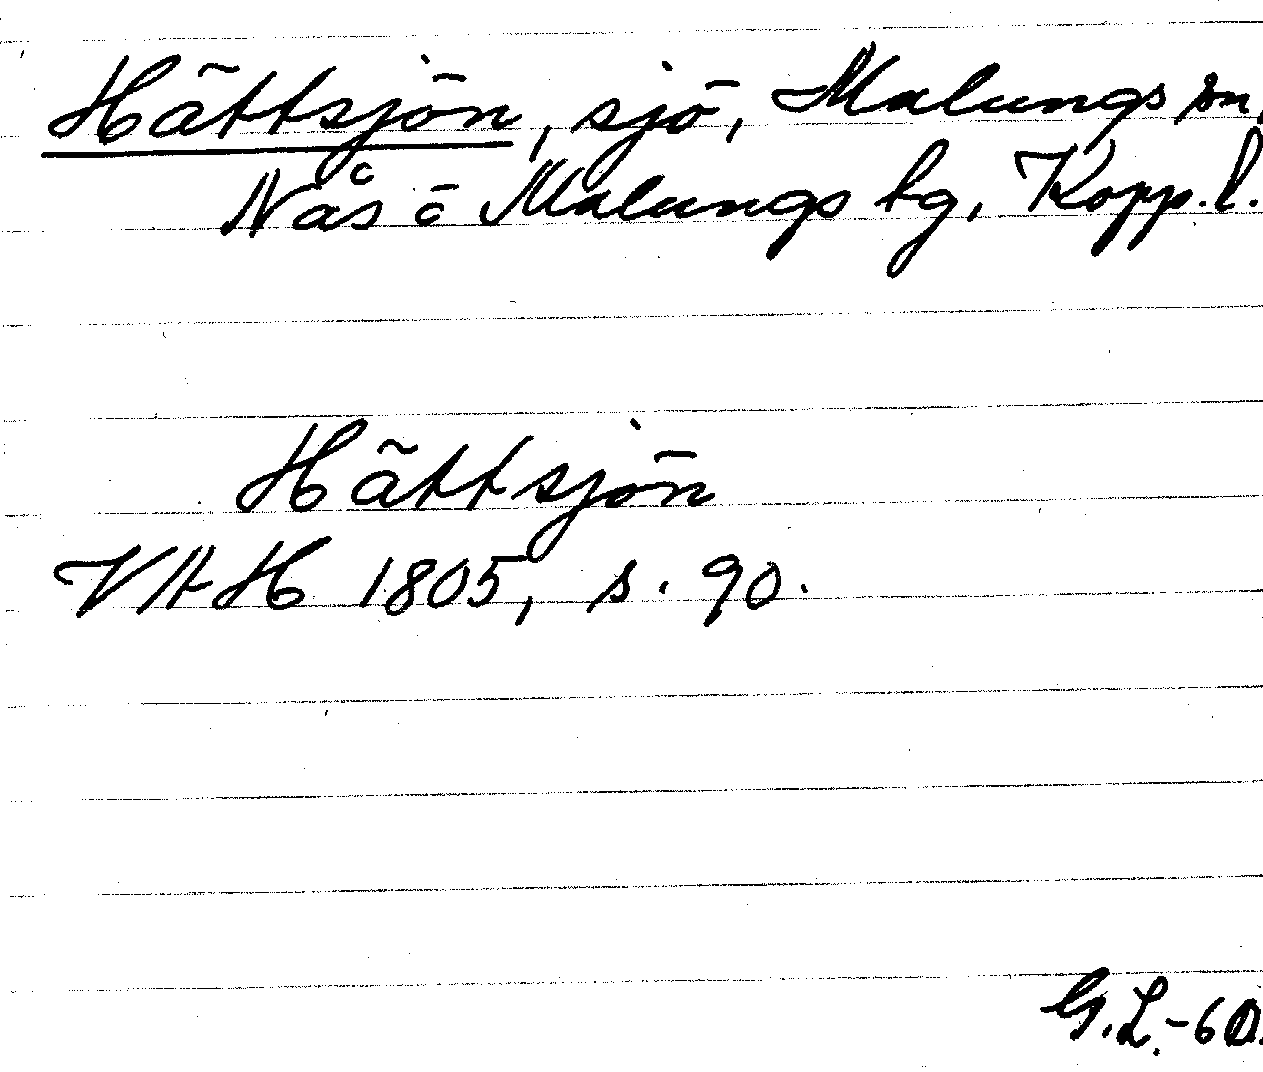 Hättsjön, sjö, Malungs sn,
Nås o Malungs tg, Kopp. l.
Hättsjön
VAH 1805, s. 90.
G.L.-60.